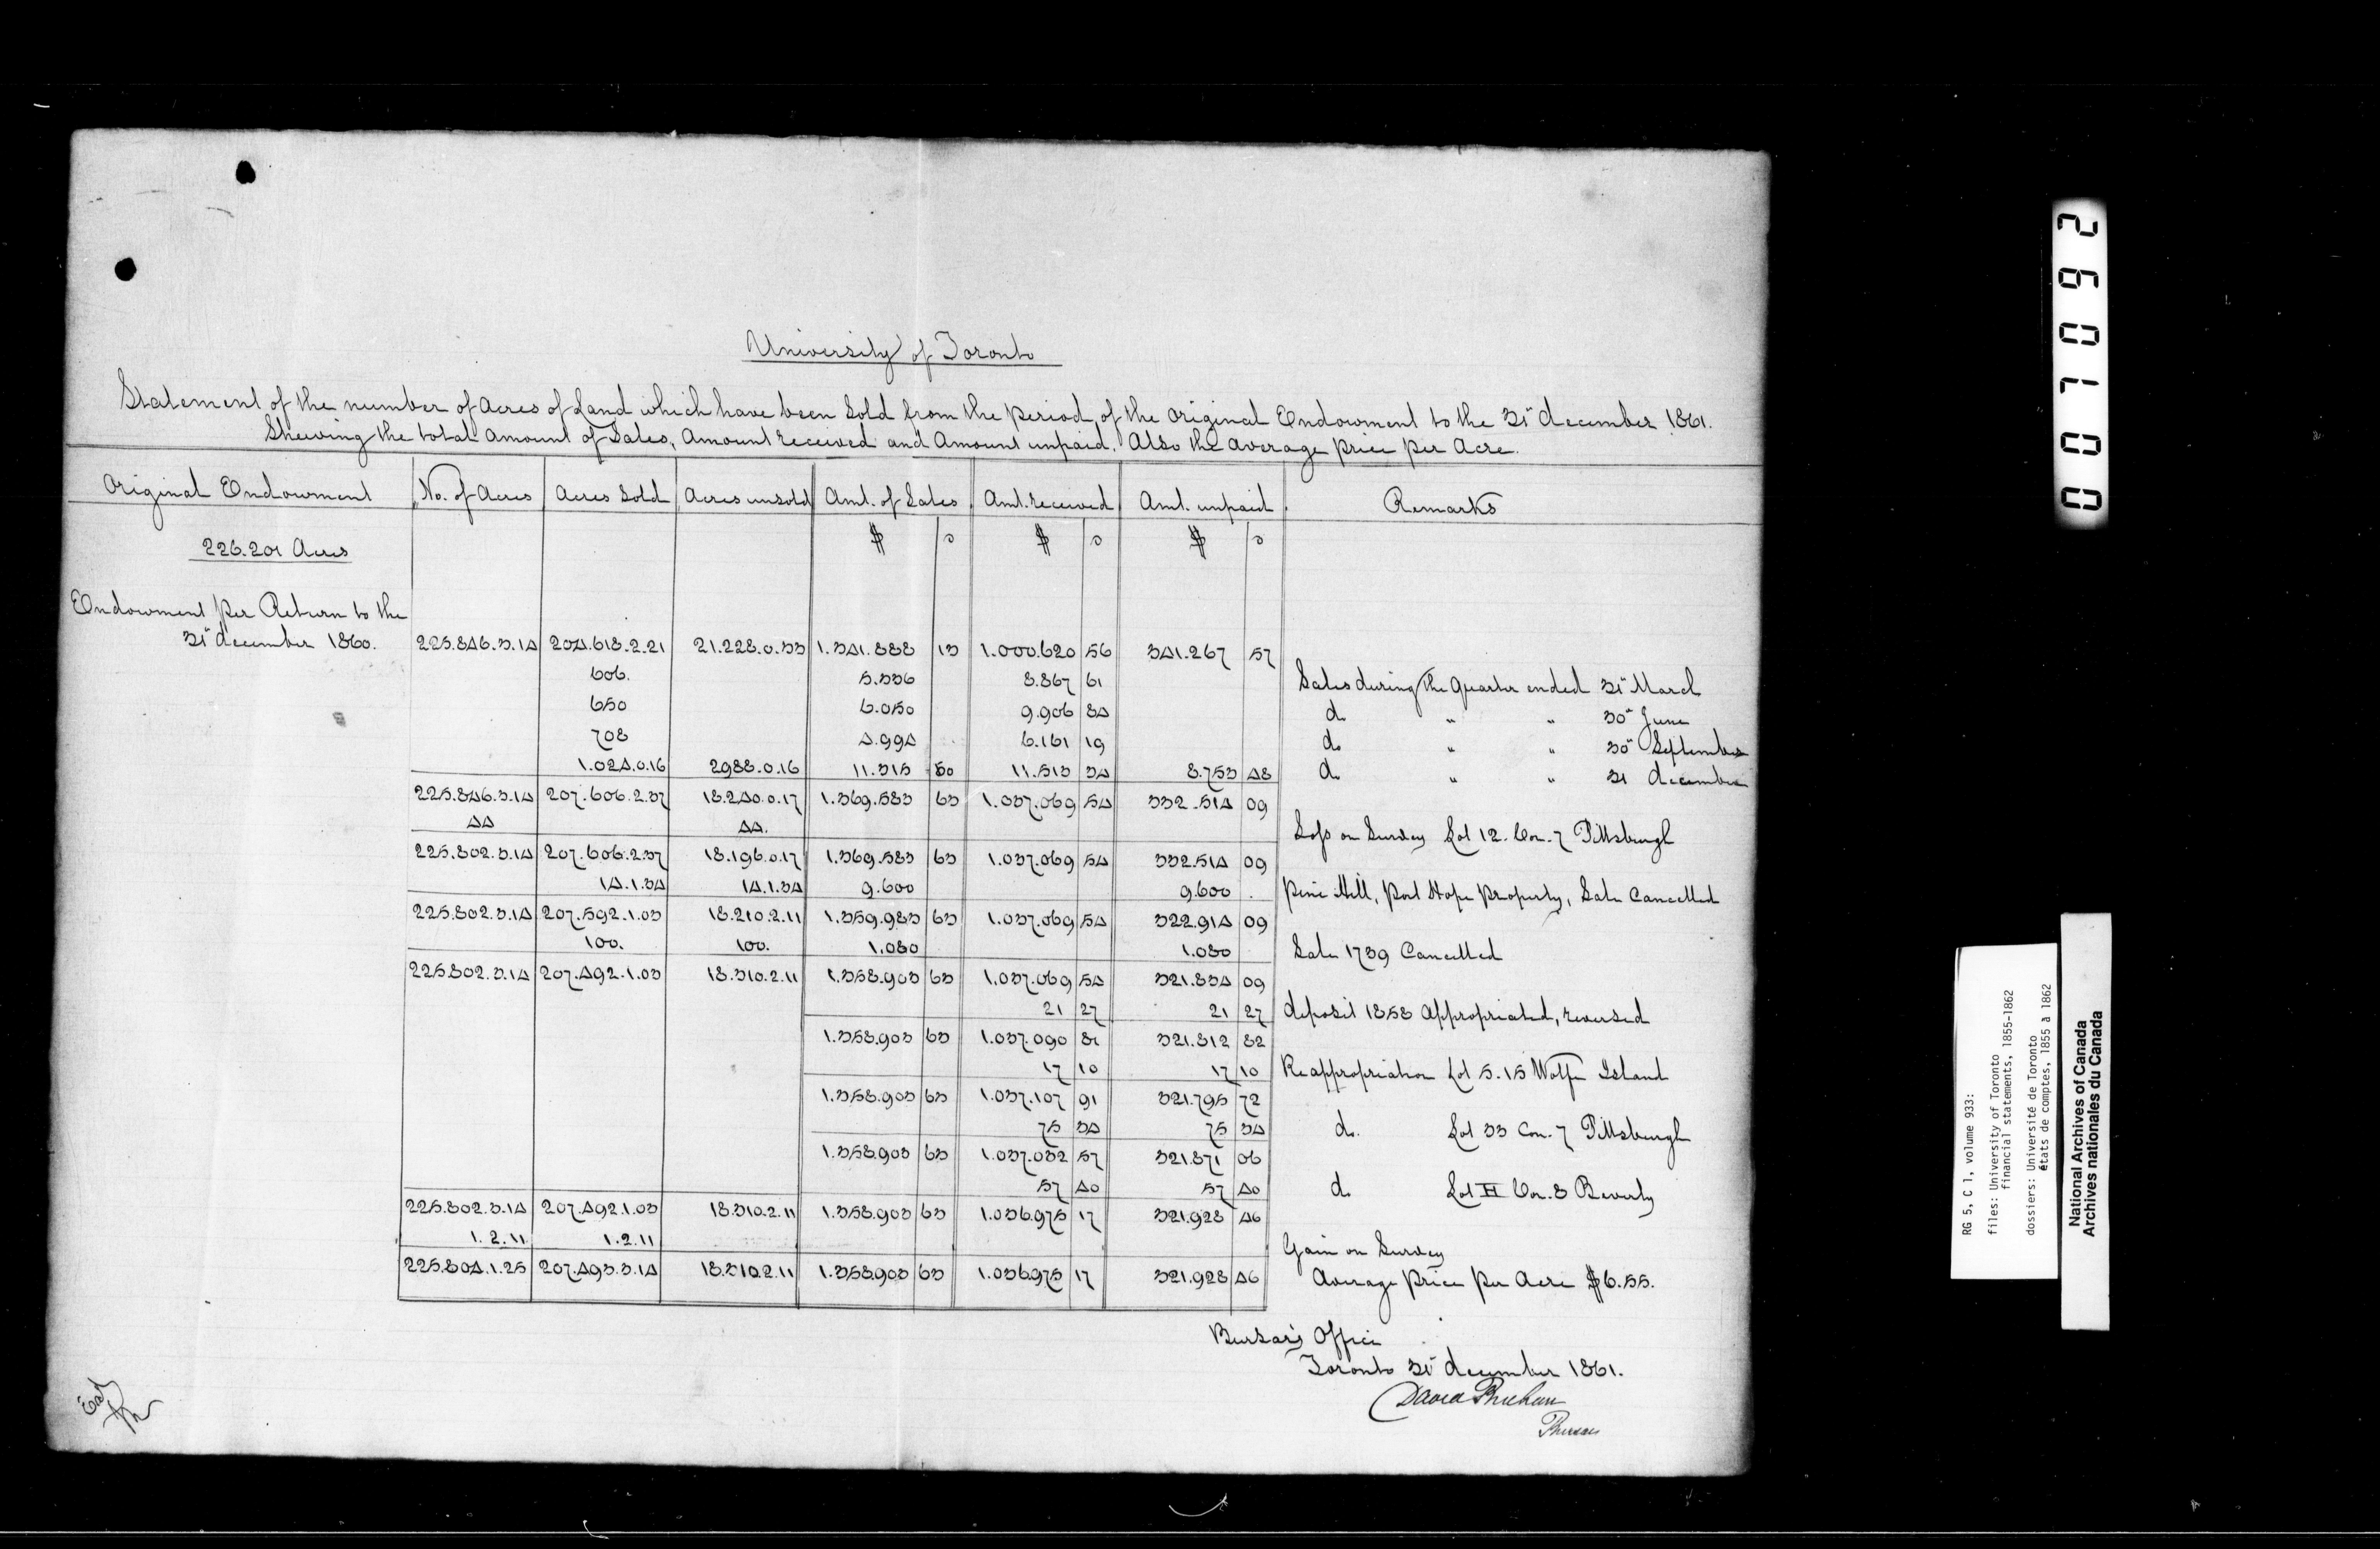 University of Toronto
Statement of the number of Acres of Land which have been Sold from the period of the Original Endowment to the 31st december 1861.
Shewing the total Amount of Sales, Amount received and Amount unpaid. Also the Average price per Acre.
Original Endowment No. of Acres Acres Sold Acres unsold Amt. of Sales Amt. received Amt. unpaid Remarks
226.201 Acres $ c $ c $ c
Endowment per Return to the
31st december 1860. 225.846.3.14 204.618.2.21 21.228.0.33 1.341.888 13 1.000.620 56 341.267 57
606. 5.336 8.867 61 Sales during the Quarter ended 31st March
650 6.050 9.906 84 do " " 30th June
708 4.994 6.161 19 do " " 30th September
1.024.0.16 2988.0.16 11.315 50 11.513 34 8.753 48 do " " 31 december
225.846.3.14 207.606.2.37 18.240.0.17 1.369.583 63 1.037.069 54 332.514 09
44 44. Loss on Survey Lot 12. Con. 7 Pittsburgh
225.802.3.14 207.606.2.37 18.196.0.17 1.369.583 63 1.037.069 54 332.514 09
14.1.34 14.1.34 9.600 9.600 Pine Hill, Port Hope Property, Sale Cancelled
225.802.3.14 207.592.1.03 18.210.2.11 1.359.983 63 1.037.069 54 322.914 09
100. 100. 1.080 1.080 Sale 1739 Cancelled
225.802.3.14 207.492.1.03 18.310.2.11 1.358.903 63 1.037.069 54 321.834 09
21 27 21 27 deposit 1858 Appropriated, reversed
1.358.903 63 1.037.090 81 321.812 82
17 10 17 10 Reappropriation Lot 5.15 Wolfe Island
1.358.903 63 1.037.107 91 321.795 72
75 34 75 34 do. Lot 33 Con. 7 Pittsburgh
1.358.903 63 1.037.032 57 321.871 06
57 40 57 40 do Lot II Con. 8 Beverly
225.802.3.14 207.492.1.03 18.310.2.11 1.358.903 63 1.036.975 17 321.928 46
1.2.11 1.2.11 Gain on Survey
225.804.1.25 207.493.3.14 18.310.2.11 1.358.903 63 1.036.975 17 321.928 46 Average price per Acre $6.55.
Bursar's Office
Toronto 31st december 1861.
David Buchan
Bursar
007092
RG 5, C 1, volume 933:
files: University of Toronto
financial statements, 1855-1862
dossiers: Université de Toronto
états de comptes, 1855 à 1862
National Archives of Canada
Archives nationales du Canada